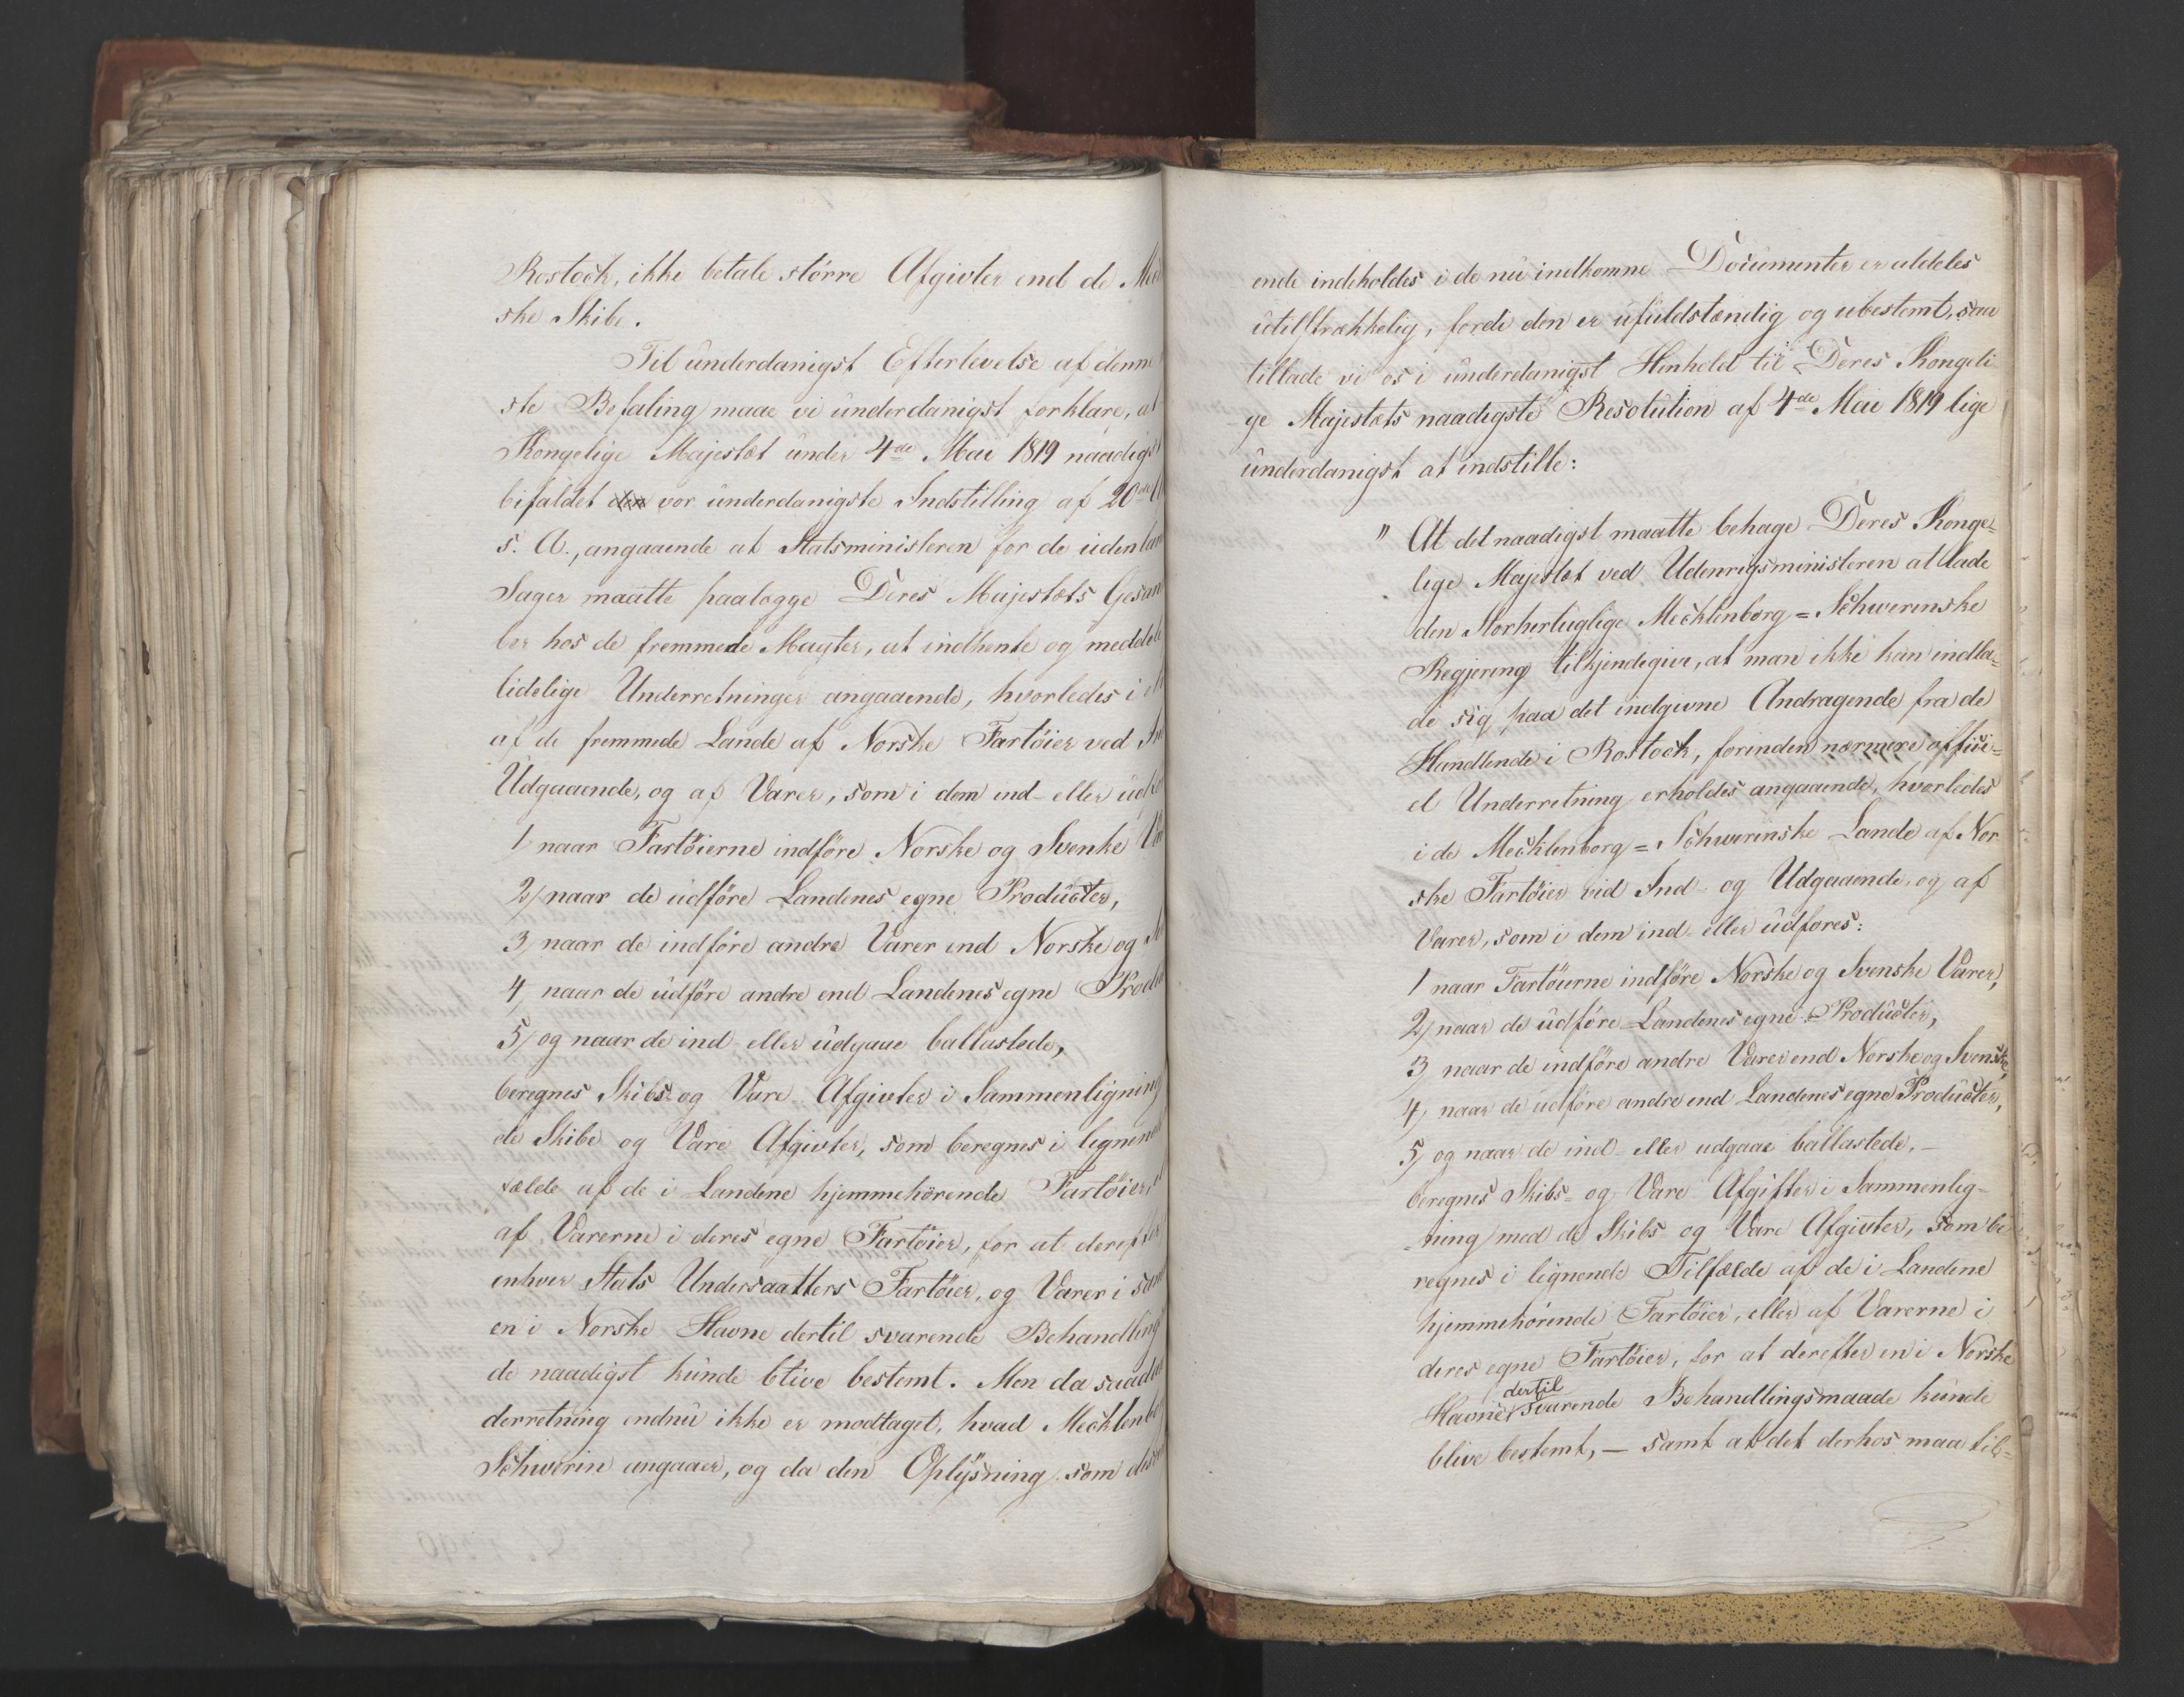 Rostock, ikke betale större Afgivter end de
ske Skibe.
Til underdanigst Efterlevelse af denne
ste Befaling maae vi underdanigst forklare, at
Kongelige Majestæt under 4de Mai 1819 naadigst
bifaldet vor underdanigste Indstilling af 20de
s. A., angaaende at Statsministeren for de udenlan
Sager maatte paalægge Deres Majestæts Gesan
ter hos de fremmede Magter, at indhente og meddele
lidelige Underretninger angaaende, hvorledes i
af de fremmede Lande af Norske Fartöier ved
Udgaaende, og af Varer, som i dem ind- eller udfö
1 naar Fartöierne indföre Norske og Svenke
2, naar de udföre Landenes egne Producter,
3, naar de indföre andre Varer end Norske og
4, naar de udföre andre end Landenes egne Produ
5, og naar de ind- eller udgaae ballastede,
beregnes Skibs- og Vare Afgivter i Sammenligning
de Skibs og Vare Afgivter, som beregnes i lignend
fælde af de i Landene hjemmehörende Fartöier,
af Varerne i deres egne Fartöier, for at derefter
enhver Stats Undersaatters Fartöier, og Varer i sam
en i Norske Havne dertil svarende Behandling
de naadigst kunde blive bestemt. Men da saada
derretning endnu ikke er modtaget, hvad Mecklenbo
Schwerin angaaer, og da den Oplysning som des
ende indeholdes i de nu indkomne Documenter er aldeles
utilstrækkelig, fordi den er ufuldstændig og ubestemt, saa
tillade vi os i underdanigst Henhold til Deres Kongeli
ge Majestæts naadigste Resolution af 4de Mai 1819 lige
underdanigst at indstille:
" At det naadigst maatte behage Deres Konge-
lige Majestæt ved Udenrigsministeren at lade
den Storhertuglige Mecklenborg=Schwerinske
Regjering tilkjendegive, at man ikke kan indla-
de sig paa det indgivne Andragende fra de
Handlende i Rostock, forinden nærmere offici-
el Underretning erholdes angaaende, hvorledes
i de Mecklenborg=Schwerinske Lande af Nor
ske Fartöier ved Ind- og Udgaaende, og af
Varer, som i dem ind- eller udföres:
1 naar Fartöierne indföre Norske og Svenske Varer,
2, naar de udföre Landenes egne Producter,
3, naar de indföre andre Varer end Norske og Svenske,
4, naar de udföre andre end Landenes egne Producter,
5, og naar de ind- eller udgaae ballastede, -
beregnes Skibs- og Vare Afgifter i Sammenlig-
-ning med de Skibs- og Vare Afgivter, som be
regnes i lignende Tilfælde af de i Landene
hjemmehörende Fartöier, eller af Varerne i
deres egne Fartöier, for at derefter en i Norske
Havne dertil svarende Behandlingsmaade kunde
blive bestemt, — samt at det derhos maa til-